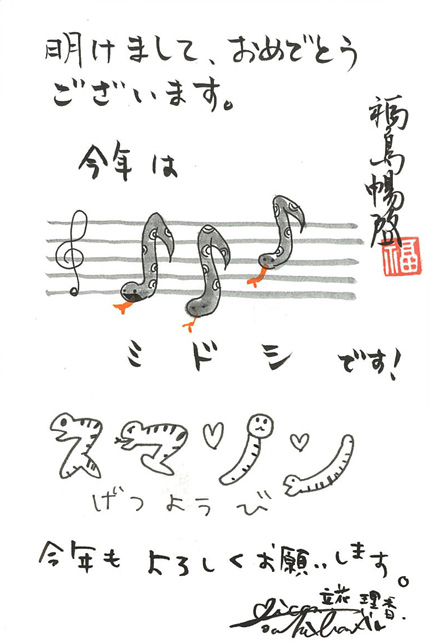 明けまして、おめでとう
ございます。
福島暢啓
福
今年は
ミ ド シ です!
スマ♡リ♡ン
げつようび
今年も よろしくお願いします。
立花 理香.